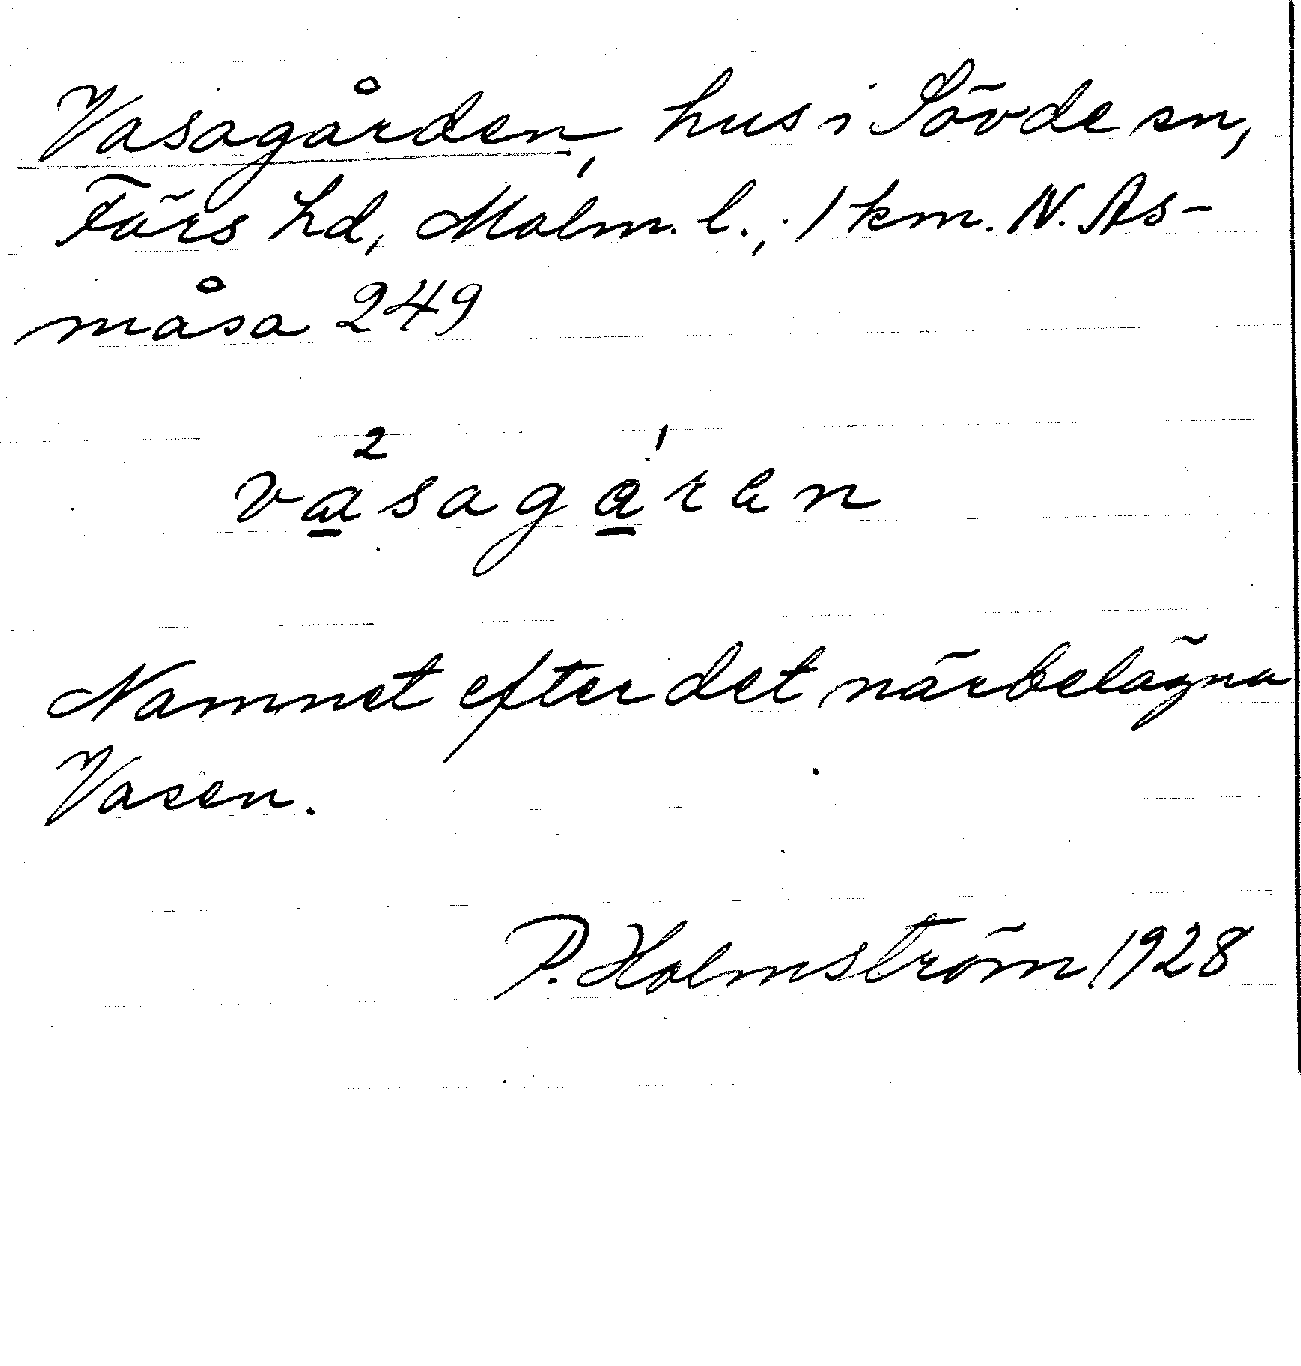 Vasagården, hus i Sövde sn,
Färs hd, Malm. l.; 1 km. N. As-
måsa 249
va²sagá¹ren
Namnet efter det närbelägna
Vasen.
P. Holmström 1928